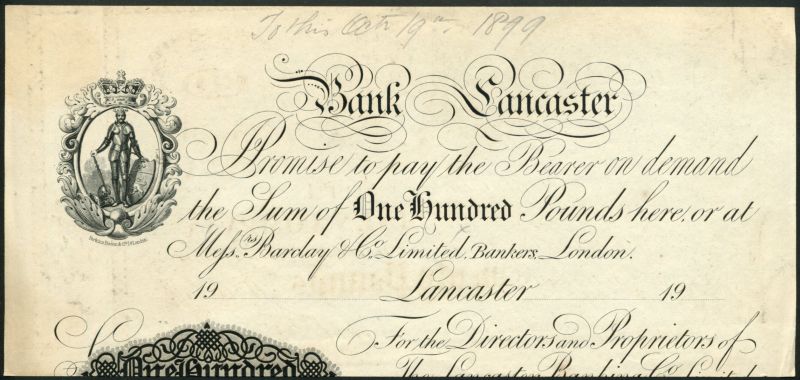 To this Octr 19th 1899
Bank Lancaster
Promise to pay the Bearer on demand
the Sum of One Hundred Pounds here, or at
Messrs. Barclay & Co. Limited, Bankers, London.
Perkins Bacon & Co. Ld. London.
19 Lancaster 19
For the Directors and Proprietors of
The Lancaster Banking Co. Limited
One Hundred